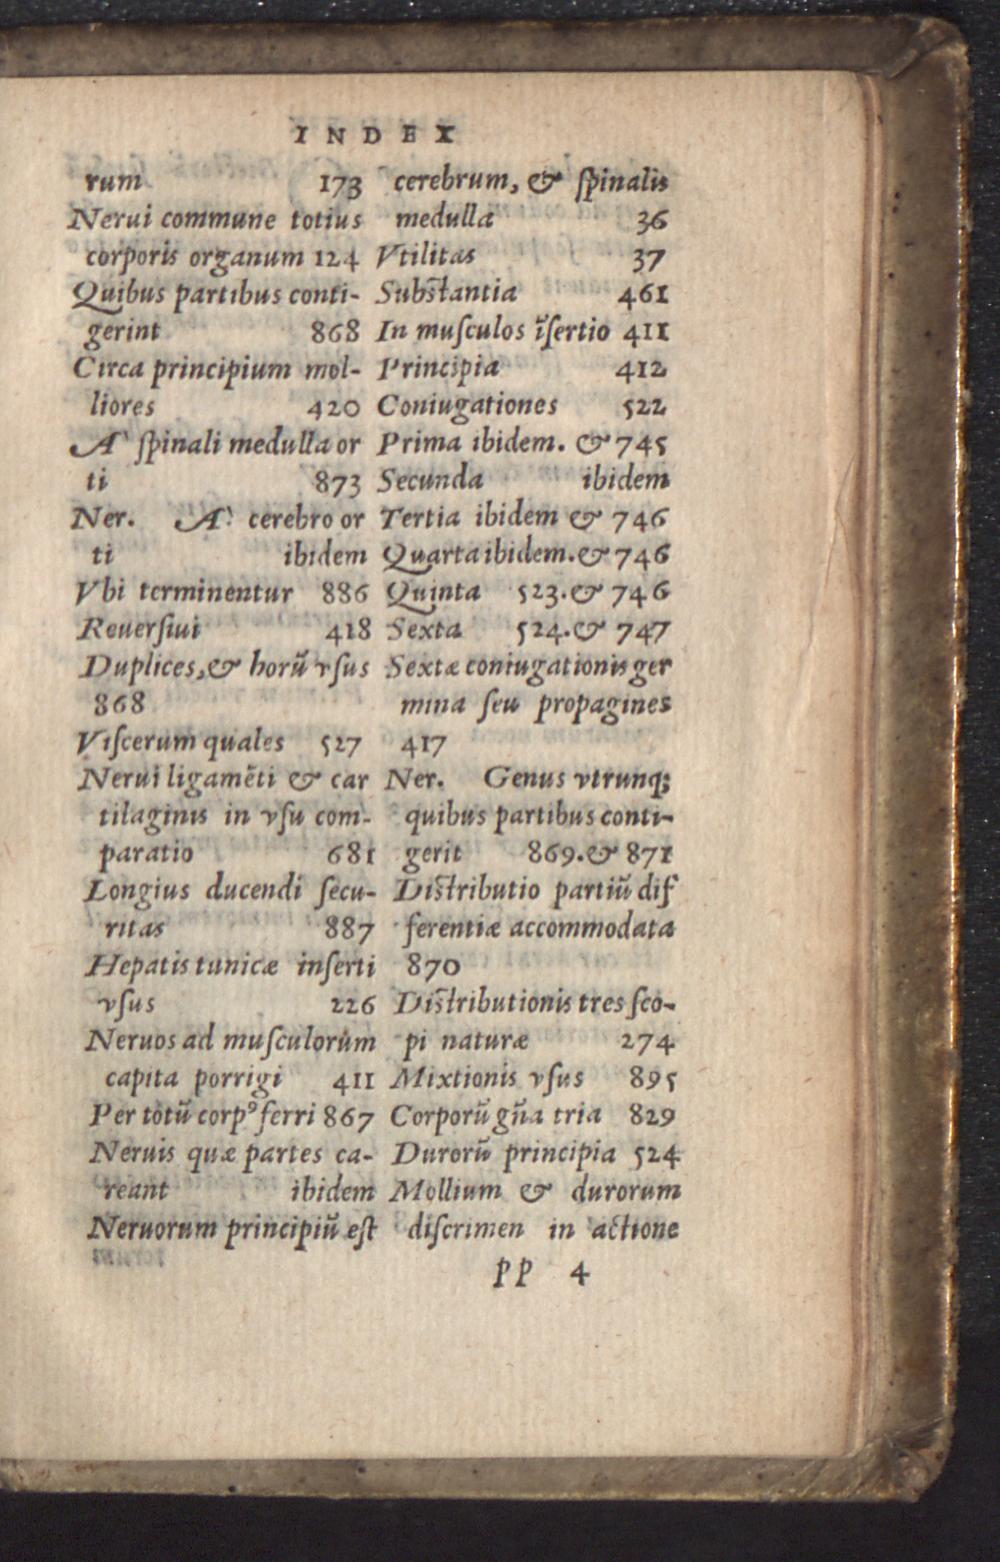 INDEX
rum 173
Nerui commune totius
corporis organum 124
Quibus partibus conti-
gerint 868
Circa principium mol-
liores 420
A' ſpinali medulla or
ti 873
Ner. A' cerebro or
ti ibidem
Vbi terminentur 886
Reuerſiui 418
Duplices,& horũ vſus
868
Viſcerum quales 527
Nerui ligamẽti & car
tilaginis in vſu com-
paratio 681
Longius ducendi ſecu-
ritas 887
Hepatis tunicæ inſerti
vſus 226
Neruos ad muſculorùm
capita porrigi 411
Per totũ corpꝰ ferri 867
Neruis quæ partes ca-
reant ibidem
Neruorum principiũ eſt
cerebrum, & ſpinalis
medulla 36
Vtilitas 37
Subſtantia 461
In muſculos ĩſertio 411
Principia 412
Coniugationes 522
Prima ibidem. & 745
Secunda ibidem
Tertia ibidem & 746
Quarta ibidem.& 746
Quinta 523.& 746
Sexta 524.& 747
Sextæ coniugationis ger
mina ſeu propagines
417
Ner. Genus vtrunq;
quibus partibus conti-
gerit 869.& 871
Diſtributio partiũ dif
ferentiæ accommodata
870
Diſtributionis tres ſco-
pi naturæ 274
Mixtionis vſus 895
Corporũ gña tria 829
Durorũ principia 524
Mollium & durorum
diſcrimen in actione
PP 4